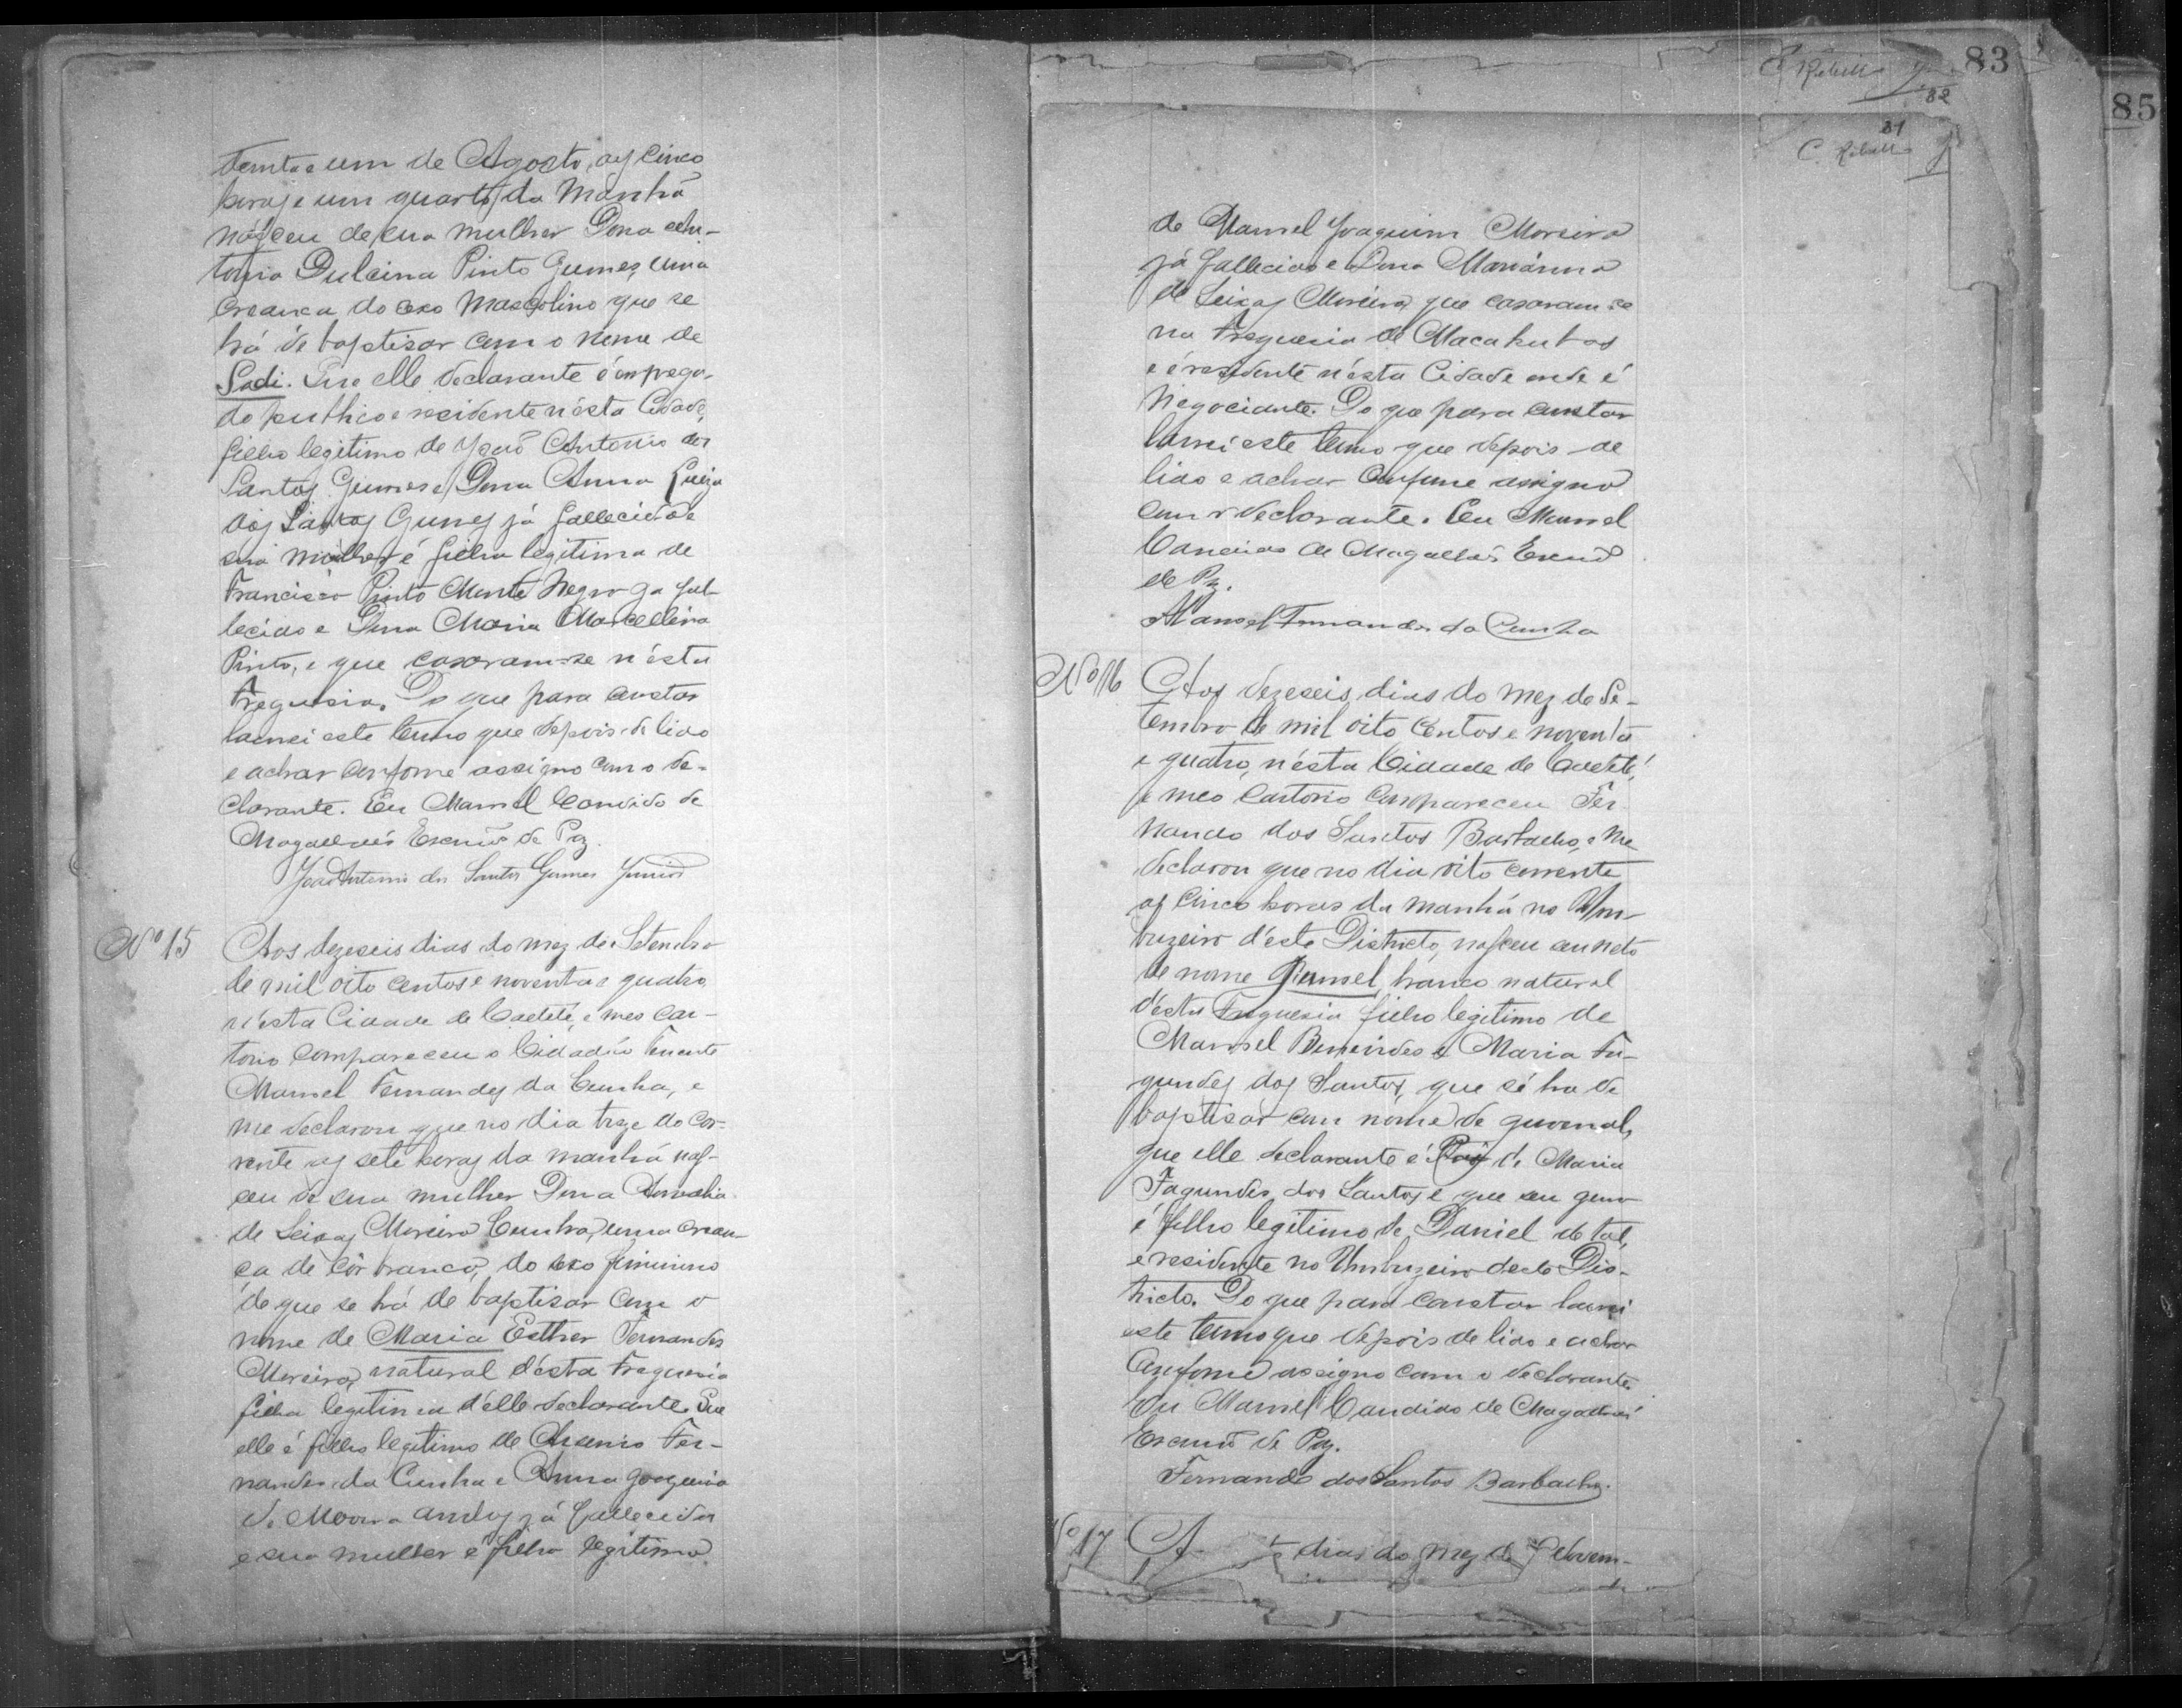 trinta e um de Agosto, as cinco
horas e um quarto da manhã
nasceu de sua mulher Dona
Dulcina Pinto Gumes, uma
creança do sexo Mascolino que se
há de baptisar com o nome de
Sadi. Que elle declarante é emprega-
do publico e residente n'ésta Cidade,
filho legitimo de João Antonio dos
Santos Gumes e Dona Anna Luiza
dos Santos Gumes já fallecidos
sua mulher é filha legitima de
Francisco Pinto Monte Negro ja fal-
lecido e Dona Maria Marcellina
Pinto, e que casaram-se n'ésta
Freguesia. Do que para constar
lavrei este termo que depois de lido
e achar conforme assigno com o de-
clarante. Eu Manoel Candido de
Magalhães Escrivão de Paz.
João Antonio dos Santos Gumes Junior
Nº 15 Aos dezeseis dias do mez de Setembro
de mil oito centos e noventa e quatro
n'ésta Cidade de Caeteté, e meo Car-
torio compareceu o Cidadão Tenente
Manoel Fernandes da Cunha, e
me declarou que no dia treze do cor-
rente as sete horas da manhã nas-
ceu de sua mulher Dona
de Seixas Moreira Cunha, uma crean-
ça de côr branca, do sexo feminino
de que se há de baptisar com o
nome de Maria Esther Fernandes
Moreira, natural d'ésta Freguesia
filha legitima d'elle declarante. Que
elle é filho legitimo de Fer-
nandes da Cunha e Anna Joaquina
de Moura ambos já fallecidos
e sua mulher é filha legitima
83
85
C. Rabello
82
81
C. Rabello
de Manoel Joaquim Moreira
já fallecido e Dona Marianna
de Seixas Moreira que casaram-se
na Freguesia de Macahubas
e é residente n'ésta Cidade onde é
Negociante. Do que para constar
lavrei este termo que depois de
lido e achar conforme assigno
com o declarante. Eu Manoel
Candido de Magalhães Escrivão
de Paz.
Manoel Fernandes da Cunha
Nº 16 Aos dezeseis dias do mez de Se-
tembro de mil oito centos e noventa
e quatro, n'ésta Cidade de Caeteté,
e meo Cartorio compareceu Fer-
nando dos Santos Barbacho, e me
declarou que no dia oito corrente
as cinco horas da manhã no Um-
buzeiro d'éste Districto, nasceu um neto
de nome branco natural
d'ésta Freguesia filho legitimo de
Manoel e Maria Fa-
gundes dos Santos, que sé ha de
baptisar com nome de
que elle declarante é Pai de Maria
Fagundes dos Santos e que seu genro
é filho legitimo de Daniel de tal,
é residente no Umbuzeiro deste Dis-
tricto. Do que para constar lavrei
este termo que depois de lido e achar
conforme assigno com o declarante.
Eu Manoel Candido de Magalhães
Escrivão de Paz.
Fernando dos Santos Barbacho.
Nº 17 dias do mez de Novem-